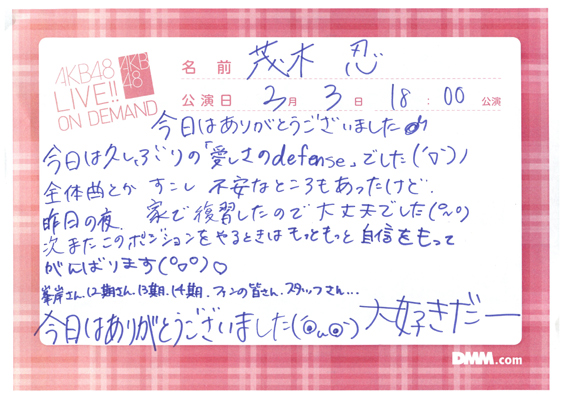 AKB48
LIVE!!
ON DEMAND
AKB
48
名前 茂木 忍
公演日 2月 3日 18:00 公演
今日はありがとうございました
今日は久しぶりの「愛しさのdefense」でした('▽')ノ
全体曲とか すこし 不安なところもあったけど、
昨日の夜、家で復習したので大丈夫でした(^~^)
次またこのポジションをやるときはもっともっと自信をもって
がんばります(^o^)♡
峯岸さん、12期さん、13期、14期、ファンの皆さん、スタッフさん...
今日はありがとうございました(◉ω◉) 大好きだー
DMM.com